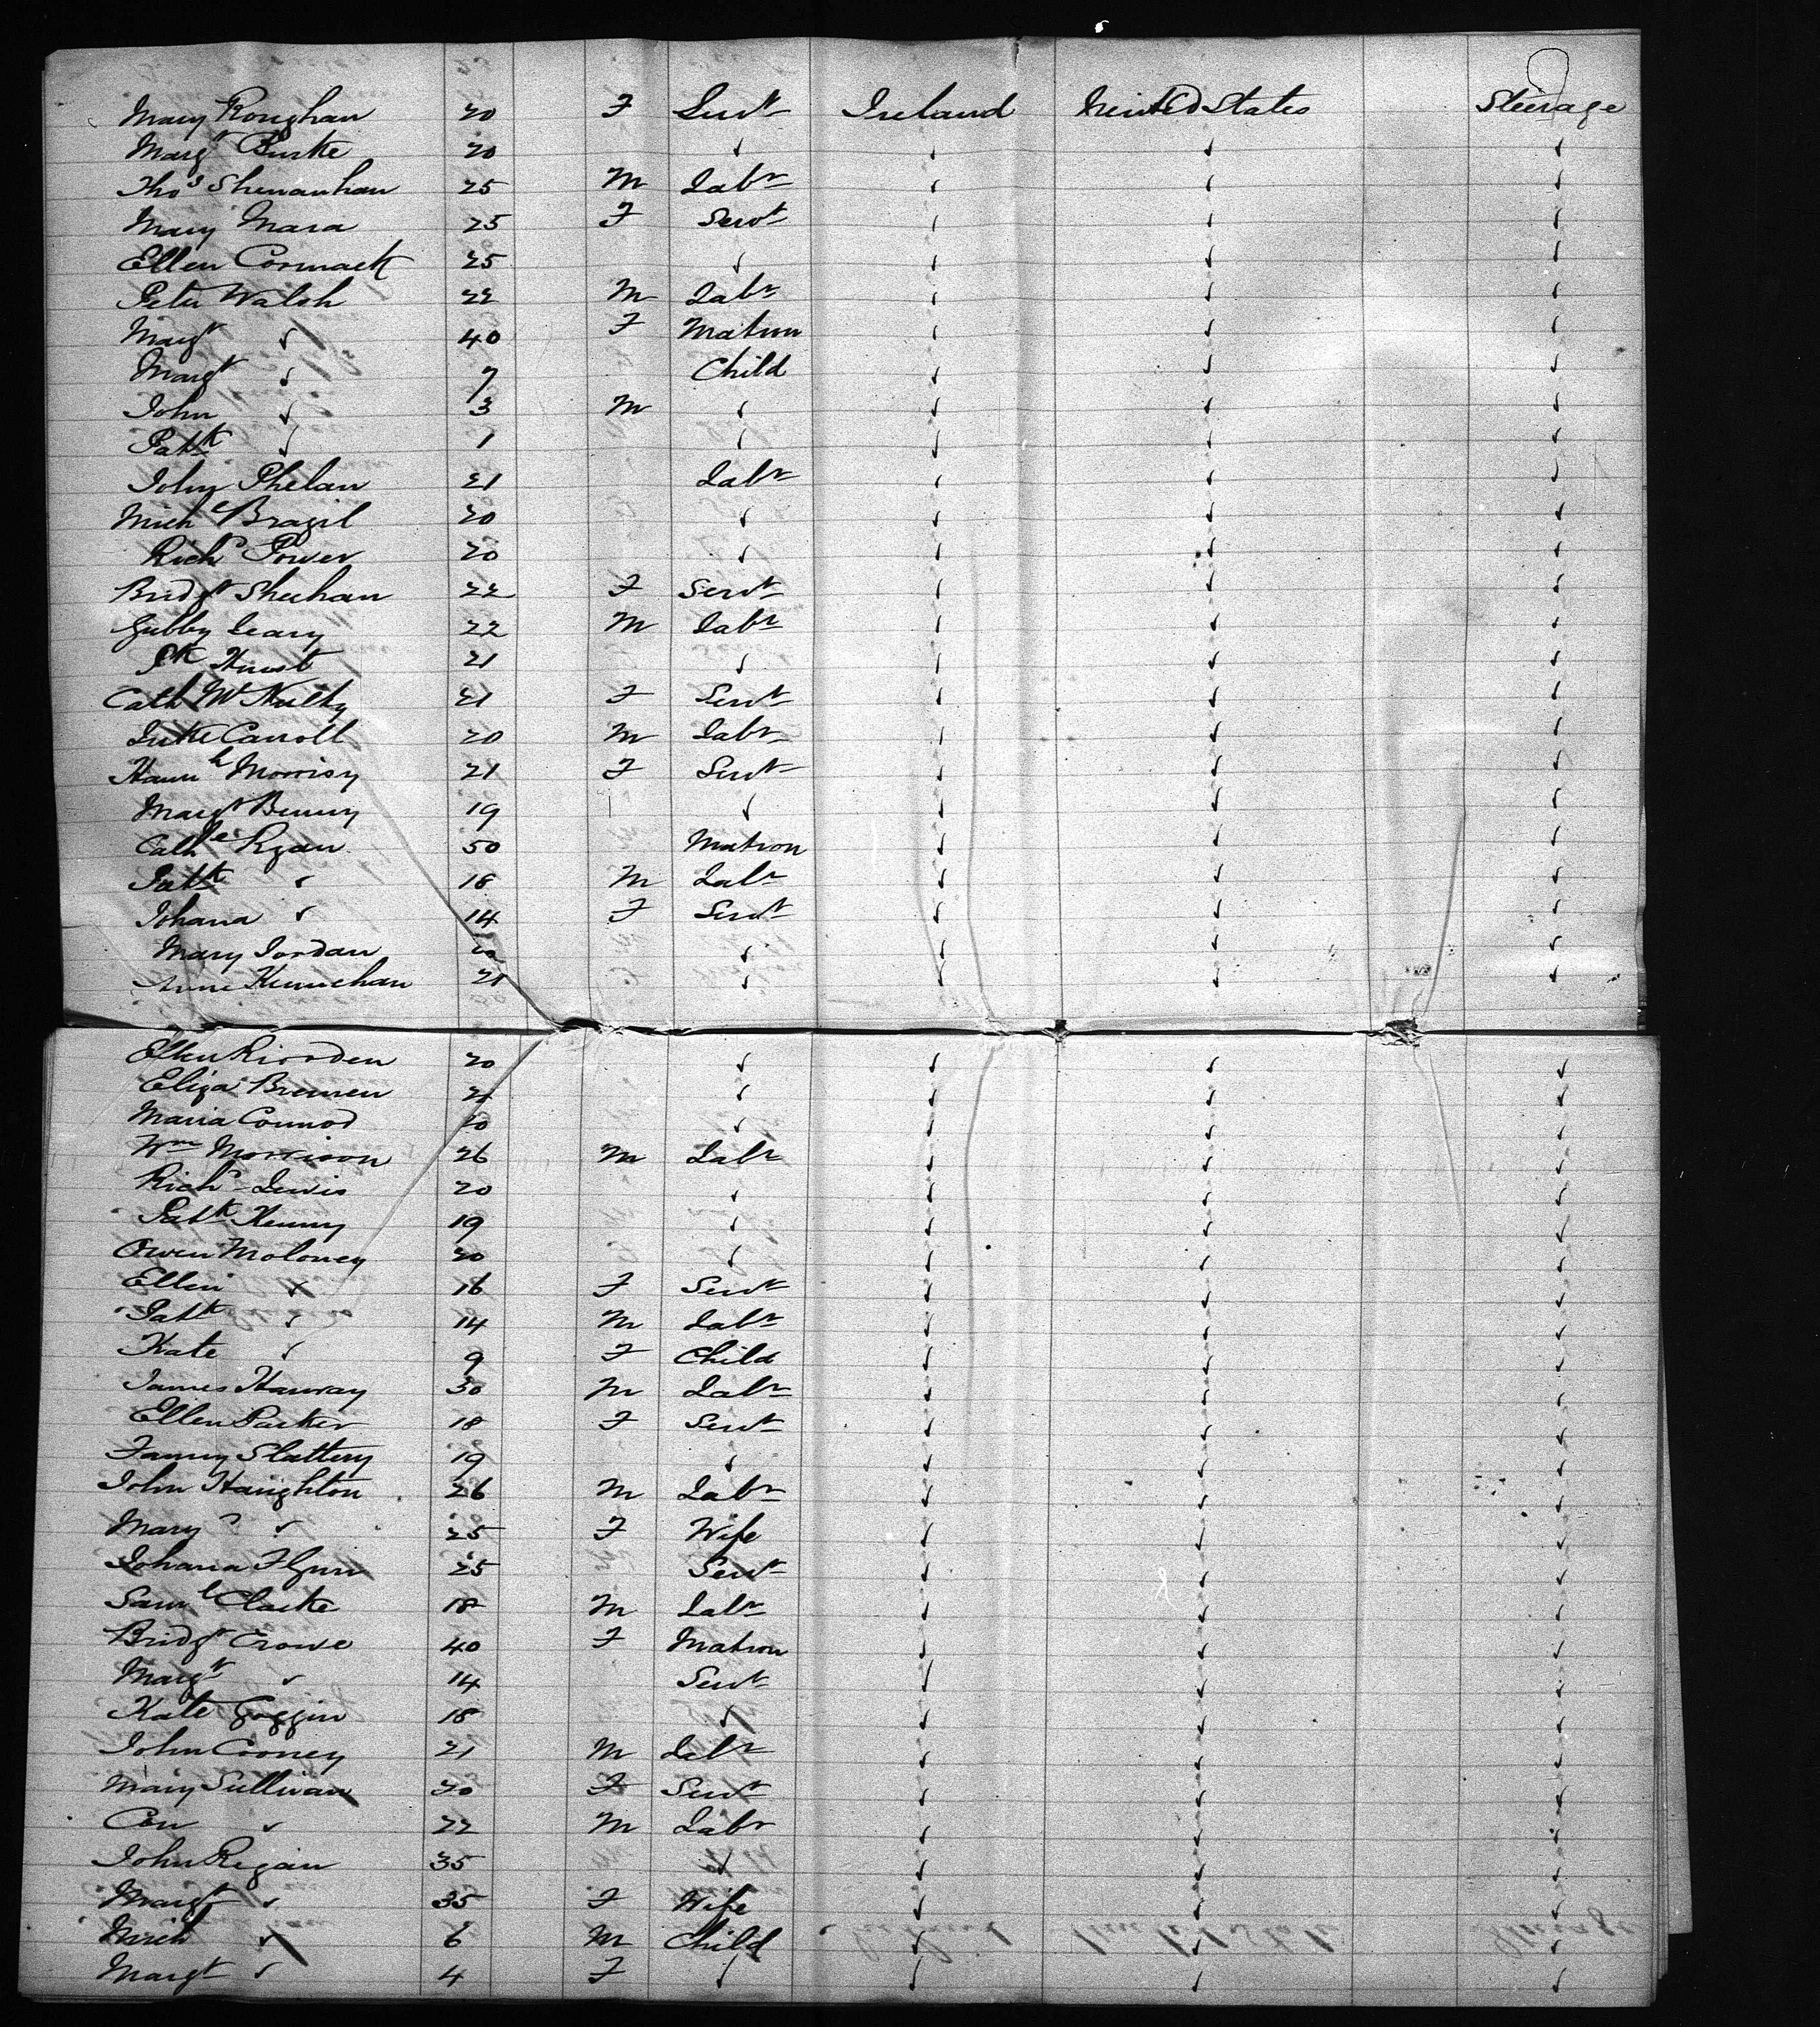 Mary Roughan 20 F Servt Ireland United States Steerage
Margt Burke 20 ✓ ✓ ✓ ✓
Thos Shenanhan 25 M Labr ✓ ✓ ✓
Mary Mara 25 F Servt ✓ ✓ ✓
Ellen Cormack 25 ✓ ✓ ✓ ✓
Peter Walsh 22 M Labr ✓ ✓ ✓
Margt ✓ 40 F Matron ✓ ✓ ✓
Margt ✓ 7 Child ✓ ✓ ✓
John ✓ 3 M ✓ ✓ ✓ ✓
Patk ✓ 1 ✓ ✓ ✓ ✓
John Phelan 21 Labr ✓ ✓ ✓
Michl Brazil 20 ✓ ✓ ✓ ✓
Richd Power 20 ✓ ✓ ✓ ✓
Bridgt Sheehan 22 F Servt ✓ ✓ ✓
Gubby Leary 22 M Labr ✓ ✓ ✓
Pk Hurst 21 ✓ ✓ ✓ ✓
Cath McNulty 21 F Servt ✓ ✓ ✓
Luke Carroll 20 M Labr ✓ ✓ ✓
Hannh Morrisy 21 F Servt ✓ ✓ ✓
Margt Bunny 19 ✓ ✓ ✓ ✓
Cathe Ryan 50 Matron ✓ ✓ ✓
Patk ✓ 18 M Labr ✓ ✓ ✓
Johana ✓ 14 F Servt ✓ ✓ ✓
Mary Jordan ✓ ✓ ✓ ✓
Anne 21 ✓ ✓ ✓ ✓
Ellen Riorden 20 ✓ ✓ ✓ ✓
Eliza Brennen 21 ✓ ✓ ✓ ✓
Maria Connod 20 ✓ ✓ ✓ ✓
Wm Morrison 26 M Labr ✓ ✓ ✓
Richd Lewis 20 ✓ ✓ ✓ ✓
Patk Kenny 19 ✓ ✓ ✓ ✓
Owen Moloney 20 ✓ ✓ ✓ ✓
Ellen ✓ 16 F Servt ✓ ✓ ✓
Patk ✓ 14 M Labr ✓ ✓ ✓
Kate ✓ 9 F Child ✓ ✓ ✓
James Harvay 30 M Labr ✓ ✓ ✓
Ellen Parker 18 F Servt ✓ ✓ ✓
Fanny Slattery 19 ✓ ✓ ✓ ✓
John Haughton 26 M Labr ✓ ✓ ✓
Mary ✓ 25 F Wife ✓ ✓ ✓
Johana Flynn 25 Servt ✓ ✓ ✓
Saml Clarke 18 M Labr ✓ ✓ ✓
Bridgt Crowe 40 F Matron ✓ ✓ ✓
Margt ✓ 14 Servt ✓ ✓ ✓
Kate Goggin 18 ✓ ✓ ✓ ✓
John Cooney 21 M Labr ✓ ✓ ✓
Mary Sullivan 20 F Servt ✓ ✓ ✓
Con ✓ 22 M Labr ✓ ✓ ✓
John Regan 35 ✓ ✓ ✓ ✓
Margt ✓ 35 F Wife ✓ ✓ ✓
Mich ✓ 6 M Child ✓ ✓ ✓
Margt ✓ 4 F ✓ ✓ ✓ ✓